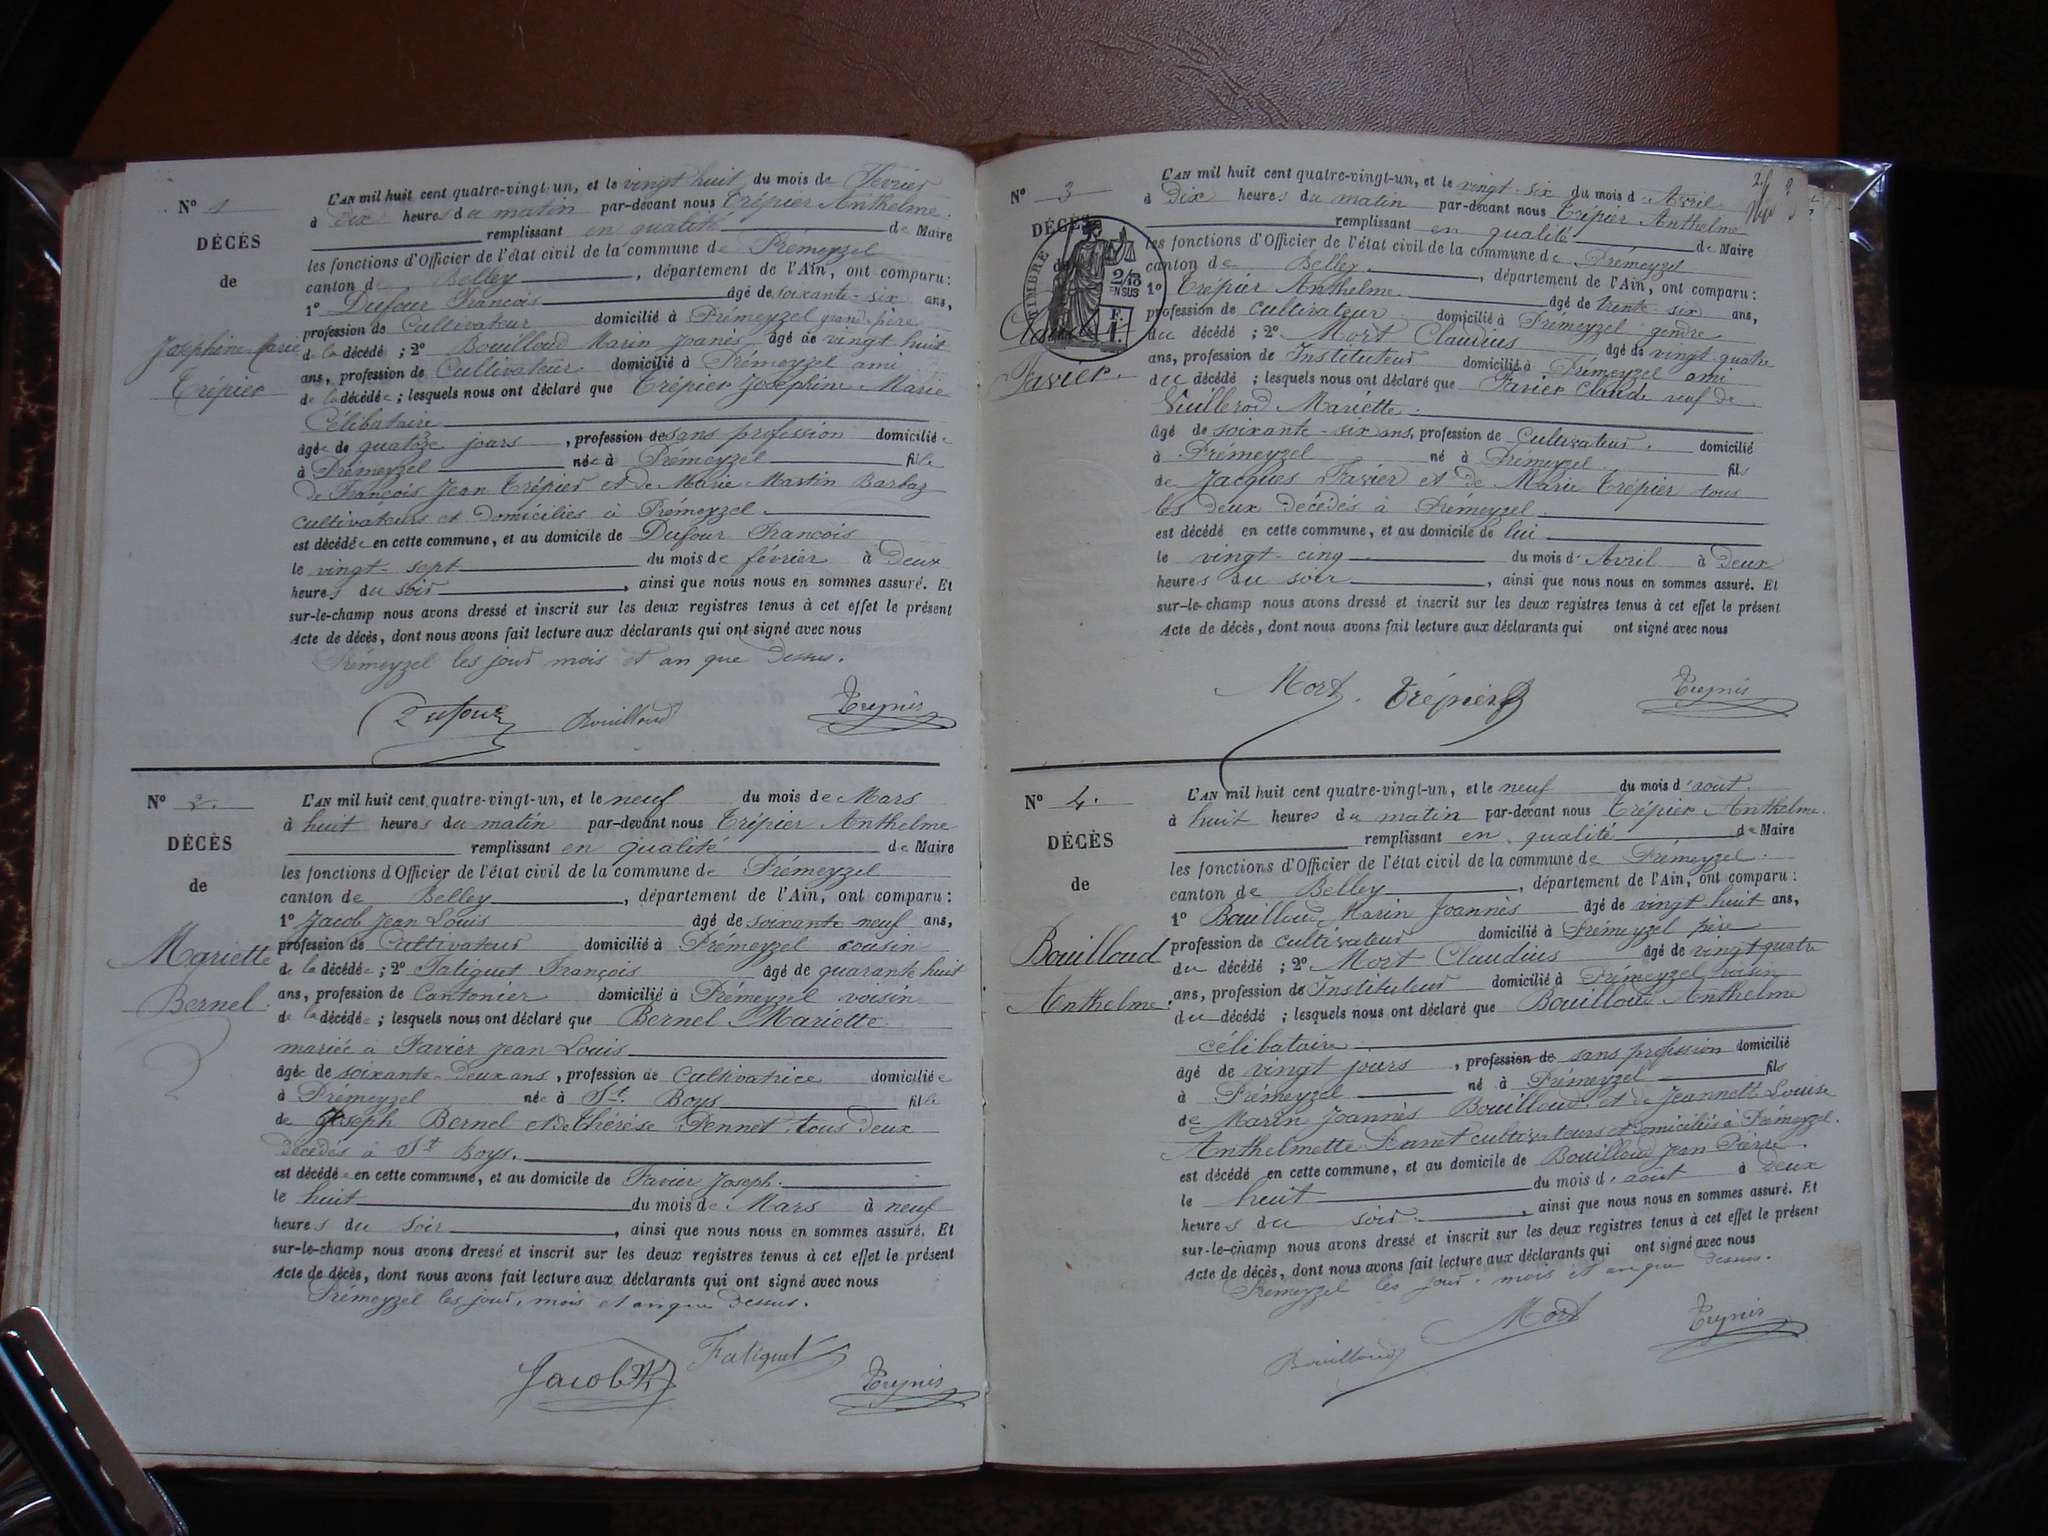 N° 1
DÉCÈS
de
Joséphine Marie
Trépier
L'AN mil huit cent quatre-vingt-un, et le vingt huit du mois de Février
à Dix heures du matin par-devant nous Trépier Anthelme
remplissant en qualité de Maire
les fonctions d'Officier de l'état civil de la commune de Prémeyzel
canton de Belley, département de l'Ain, ont comparu :
1° Dufour François âgé de soixante-six ans,
profession de Cultivateur domicilié à Prémeyzel grand-père
de la décédée ; 2° Bouilloud Marin Joanès âgé de vingt huit
ans, profession de Cultivateur domicilié à Prémeyzel ami
de la décédée ; lesquels nous ont déclaré que Trépier Joséphine Marie
Célibataire
âgée de quatorze jours, profession de sans profession domiciliée
à Prémeyzel née à Prémeyzel fille
de François Jean Trépier et de Marie Martin Barbaz
cultivateurs et domiciliés à Prémeyzel.
est décédée en cette commune, et au domicile de Dufour François
le vingt-sept du mois de février à Deux
heures du soir, ainsi que nous nous en sommes assuré. Et
sur-le-champ nous avons dressé et inscrit sur les deux registres tenus à cet effet le présent
Acte de décès, dont nous avons fait lecture aux déclarants qui ont signé avec nous
Prémeyzel les jour mois et an que dessus.
Dufour Bouilloud
N° 2.
DÉCÈS
de
Mariette
Bernel.
L'AN mil huit cent quatre-vingt-un, et le neuf du mois de Mars
à huit heures du matin par-devant nous Trépier Anthelme
remplissant en qualité de Maire
les fonctions d'Officier de l'état civil de la commune de Prémeyzel
canton de Belley, département de l'Ain, ont comparu :
1° Jacob Jean Louis âgé de soixante-neuf ans,
profession de Cultivateur domicilié à Prémeyzel cousin
de la décédée ; 2° Fatiguet François âgé de quarante huit
ans, profession de Cantonier domicilié à Prémeyzel voisin
de la décédée ; lesquels nous ont déclaré que Bernel Mariette
mariée à Favier Jean Louis
âgée de soixante-deux ans, profession de Cultivatrice domiciliée
à Prémeyzel née à St. Boys fille
de Joseph Bernel et de Thérèse Pennet, tous deux
décédés à St Boys.
est décédée en cette commune, et au domicile de Favier Joseph.
le huit du mois de Mars à neuf
heures du soir, ainsi que nous nous en sommes assuré. Et
sur-le-champ nous avons dressé et inscrit sur les deux registres tenus à cet effet le présent
Acte de décès, dont nous avons fait lecture aux déclarants qui ont signé avec nous
Prémeyzel les jour, mois et an que dessus.
Jacob Fatiguet
N° 3
DÉCÈS
TIMBRE
2/10
EN SUS
F.
1.
Favier.
L'AN mil huit cent quatre-vingt-un, et le vingt-six du mois d'Avril
à Dix heures du matin par-devant nous Trépier Anthelme
remplissant en qualité de Maire
les fonctions d'Officier de l'état civil de la commune de Prémeyzel
canton de Belley, département de l'Ain, ont comparu :
1° Trépier Anthelme âgé de trente-six ans,
profession de cultivateur domicilié à Prémeyzel gendre
du décédé ; 2° Mort Claudius âgé de vingt-quatre
ans, profession de Instituteur domicilié à Prémeyzel ami
du décédé ; lesquels nous ont déclaré que Favier Claude veuf de
Vuillerod Mariette.
âgé de soixante-six ans, profession de Cultivateur. domicilié
à Prémeyzel né à Prémeyzel fils
de Jacques Favier et de Marie Trépier tous
les deux décédés à Prémeyzel.
est décédé en cette commune, et au domicile de lui
le vingt-cinq du mois d'Avril à Deux
heures du soir, ainsi que nous nous en sommes assuré. Et
sur-le-champ nous avons dressé et inscrit sur les deux registres tenus à cet effet le présent
Acte de décès, dont nous avons fait lecture aux déclarants qui ont signé avec nous
Mort. Trépier
N° 4.
DÉCÈS
de
Bouilloud
Anthelme.
L'AN mil huit cent quatre-vingt-un, et le neuf du mois d'août.
à huit heures du matin par-devant nous Trépier Anthelme.
remplissant en qualité de Maire
les fonctions d'Officier de l'état civil de la commune de Prémeyzel.
canton de Belley, département de l'Ain, ont comparu :
1° Bouilloud Marin Joannès âgé de vingt-huit ans,
profession de cultivateur domicilié à Prémeyzel père
du décédé ; 2° Mort Claudius âgé de vingt quatre
ans, profession de Instituteur domicilié à Prémeyzel voisin
du décédé ; lesquels nous ont déclaré que Bouilloud Anthelme
célibataire.
âgé de vingt jours, profession de sans profession domicilié
à Prémeyzel né à Prémeyzel fils
de Marin Joannès Bouilloud et de Jeannette Louise
Anthelmette Panet cultivateurs et domiciliés à Prémeyzel.
est décédé en cette commune, et au domicile de Bouilloud Jean Pierre.
le huit du mois d'août à deux
heures du soir, ainsi que nous nous en sommes assuré. Et
sur-le-champ nous avons dressé et inscrit sur les deux registres tenus à cet effet le présent
Acte de décès, dont nous avons fait lecture aux déclarants qui ont signé avec nous
Prémeyzel les jour, mois et an que dessus.
Bouilloud Mort